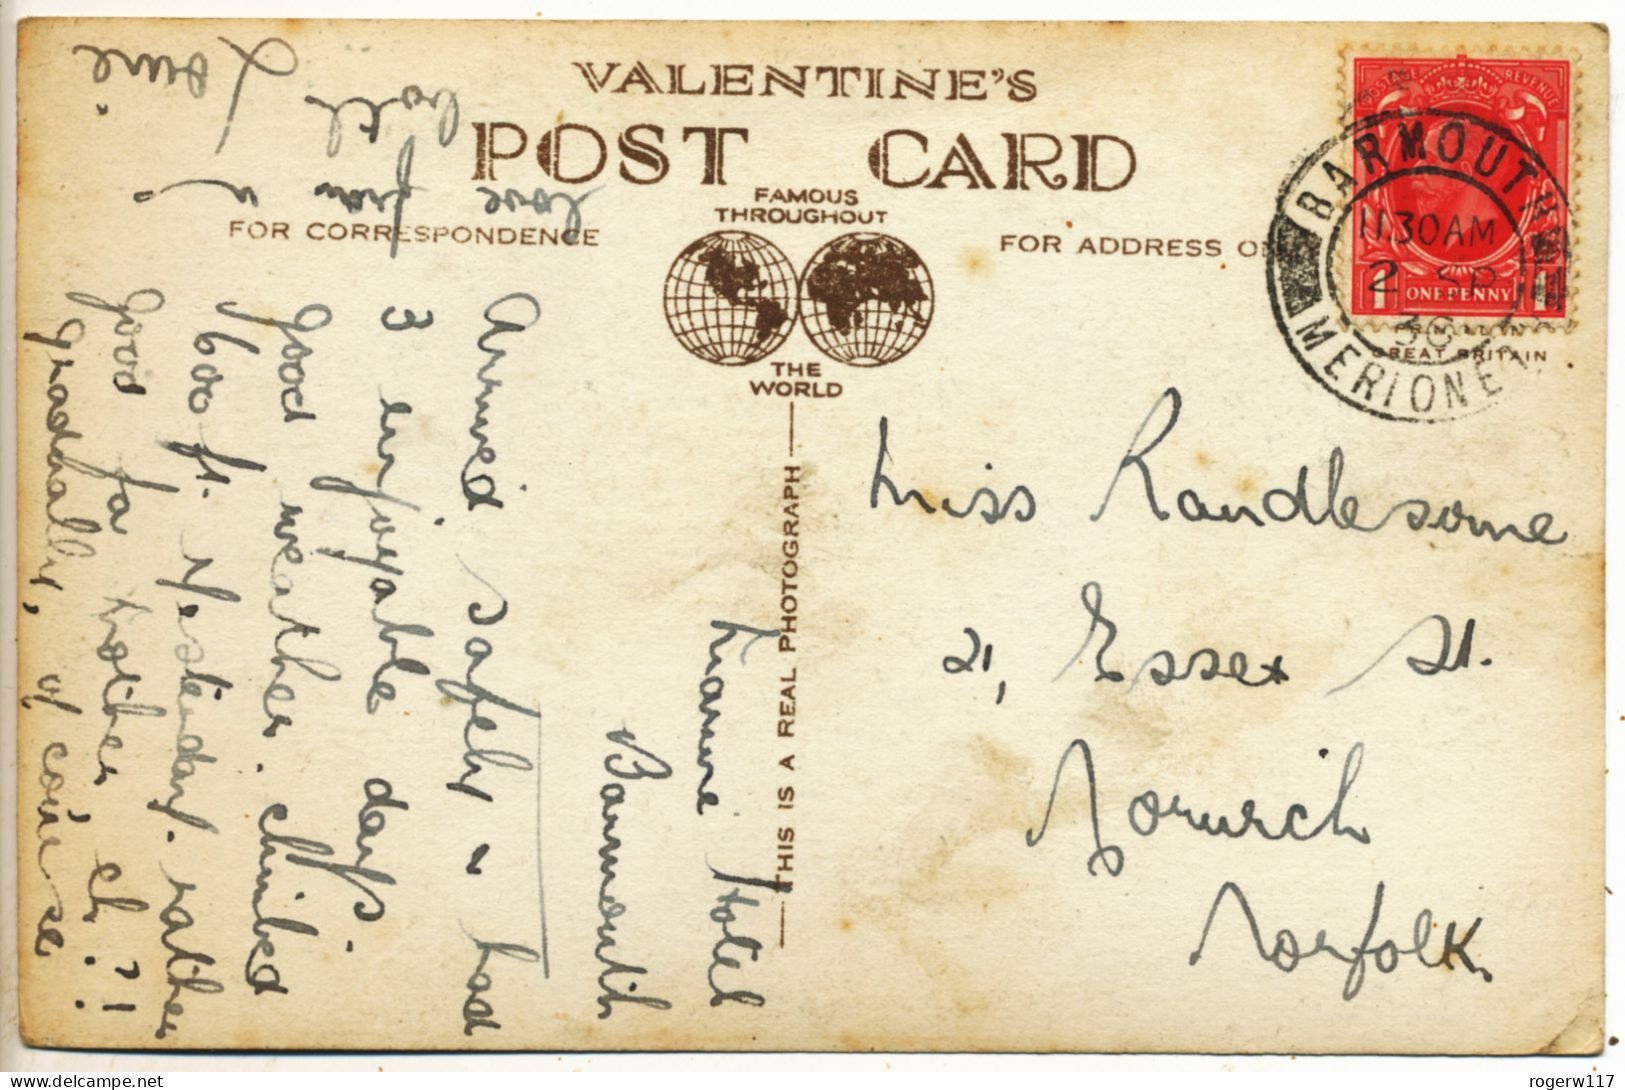 VALENTINE'S
POST CARD
FAMOUS
THROUGHOUT
THE
WORLD
FOR CORRESPONDENCE
FOR ADDRESS ON
THIS IS A REAL PHOTOGRAPH
PRINTED IN
GREAT BRITAIN
POSTAGE REVENUE
1 ONE PENNY 1
BARMOUTH
11.30 AM
2 SP
MERIONETH
Miss Randlesome
21, Essex St.
Norwich
Norfolk.
Hotel
Barmouth
Arrived safely & had
3 enjoyable days.
Good weather. Climbed
600 ft. yesterday. rather
good for mother, eh?!
gradually, of course
love
from
both